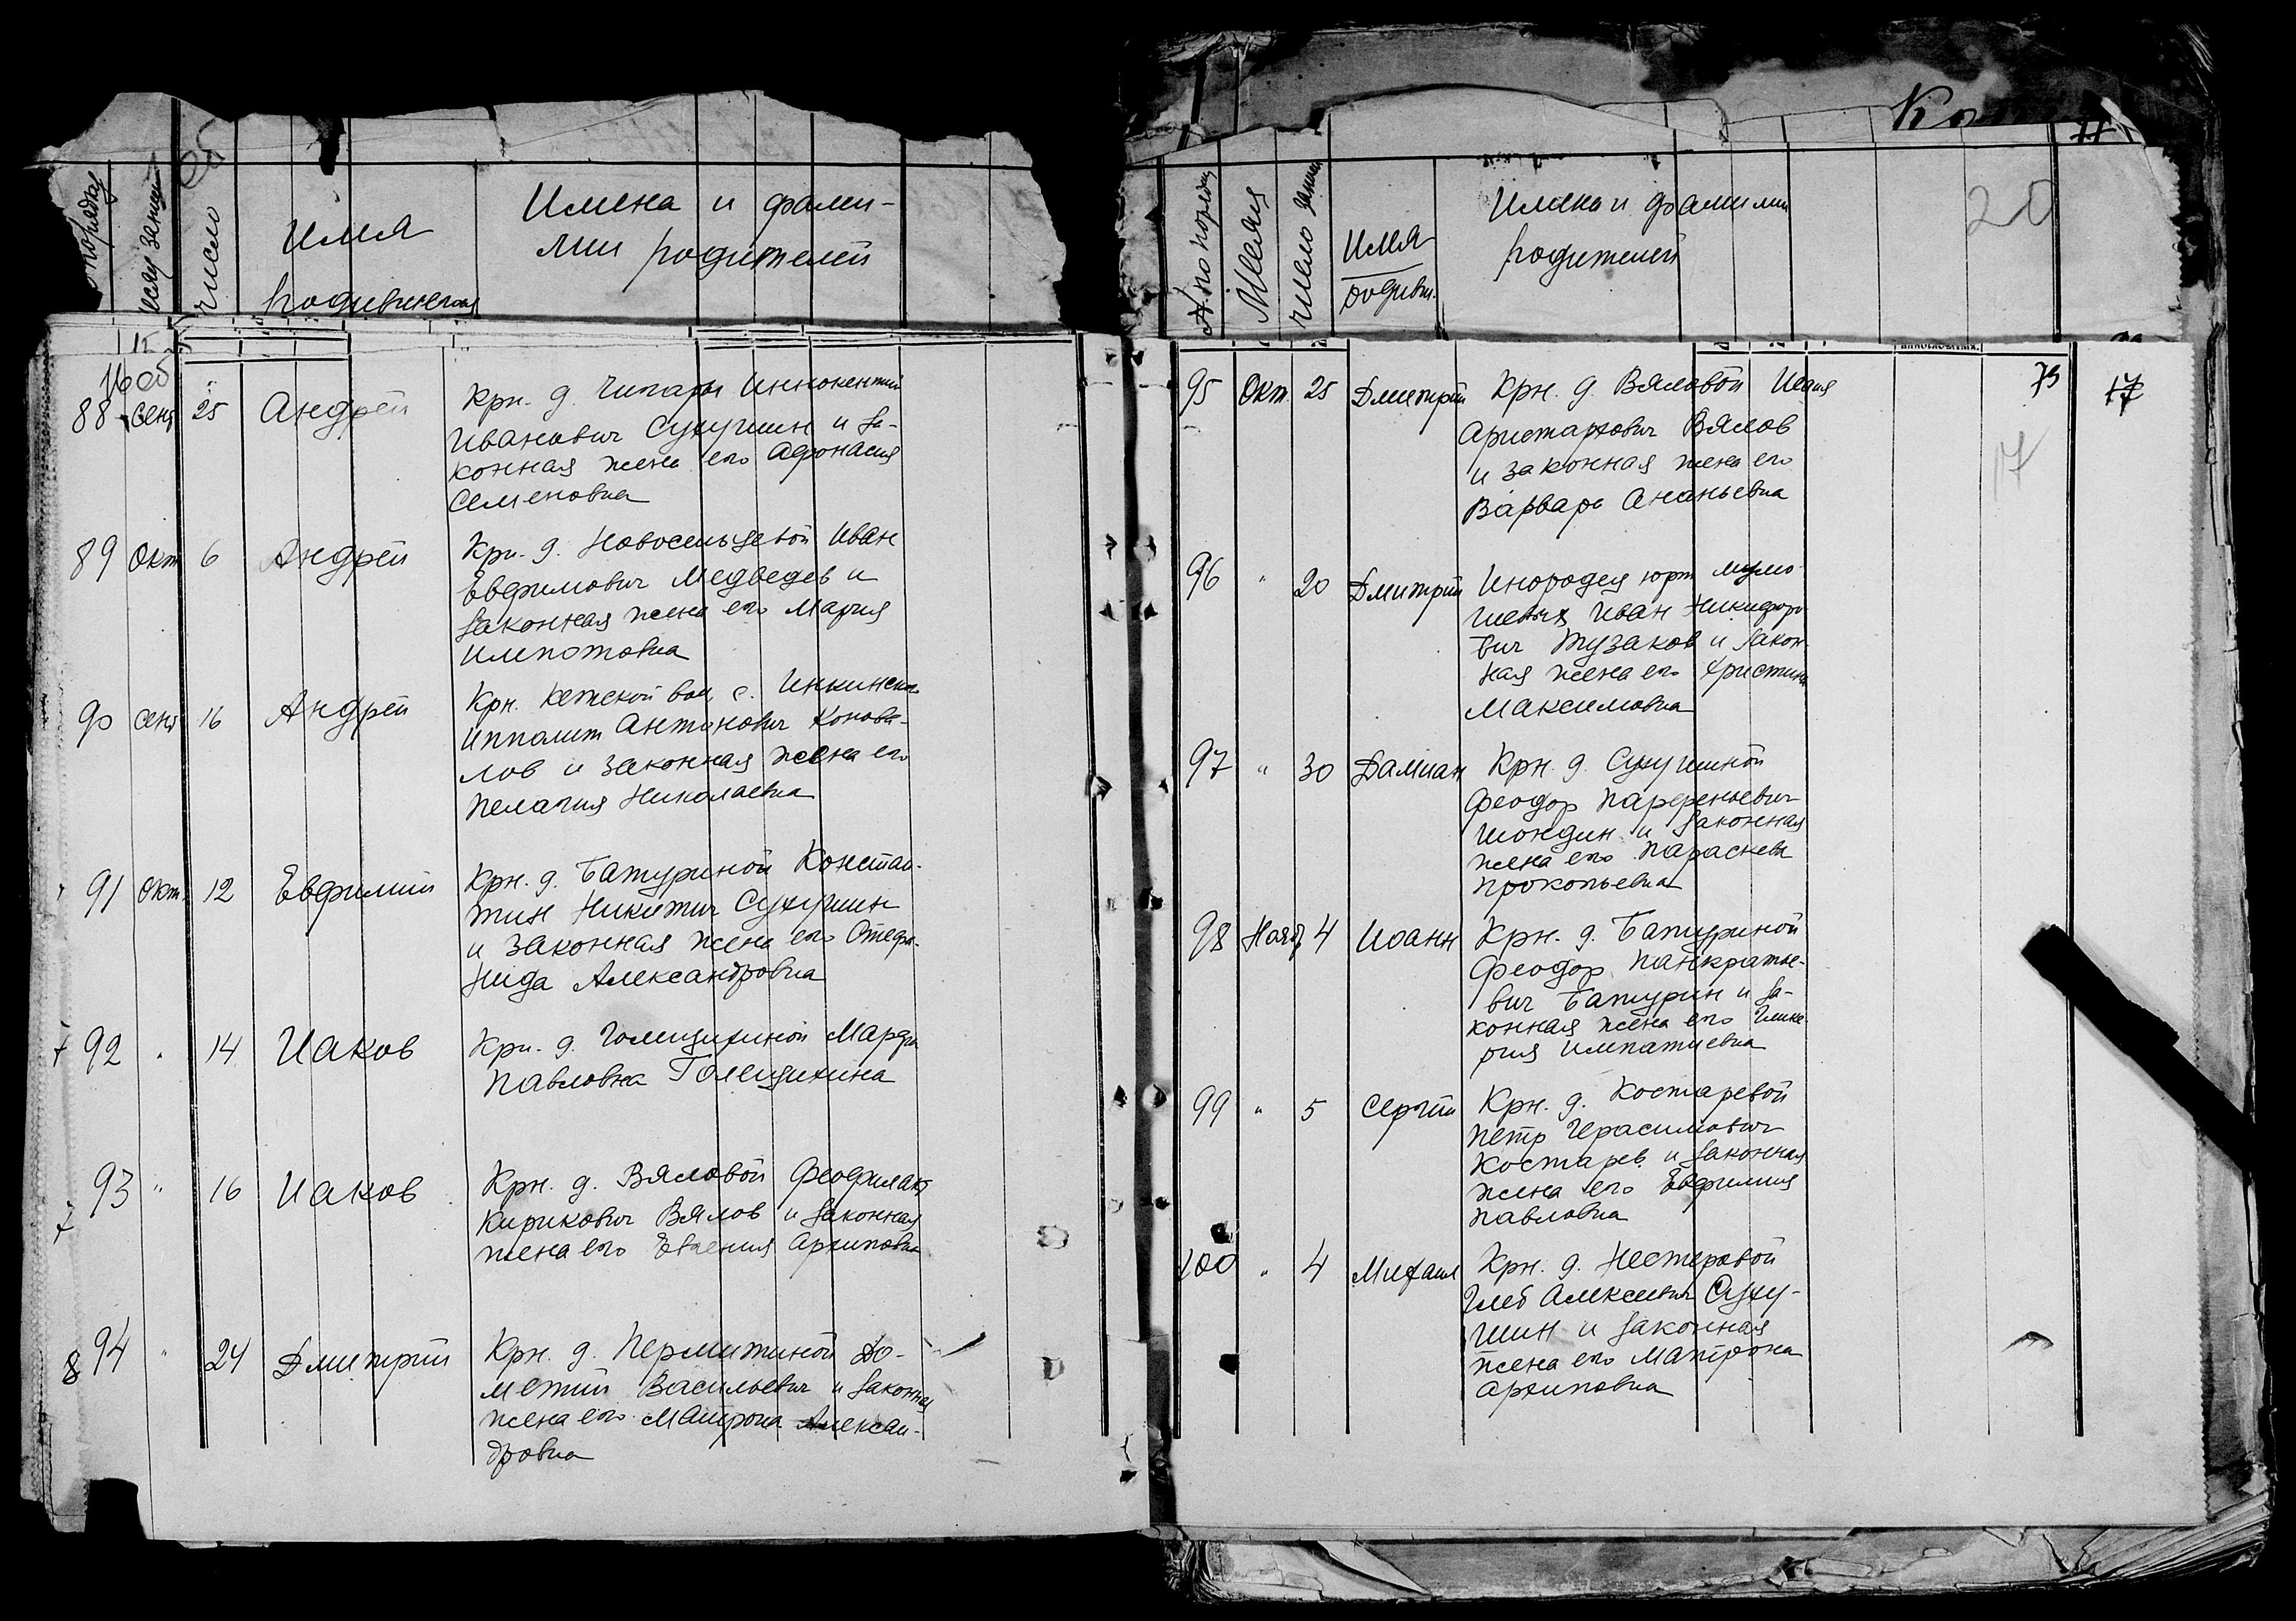 об
по порядку
месяц
число
Имя
родившегося
Имена и фами-
лии родителей
16об
88 сент 25 Андрей Крн. д. Чигары Иннокентий
Иванович Сухушин и за-
конная жена его Афонасия
Семеновна
89 Окт 6 Андрей Крн. д. Новосельцевой Иван
Евфимович Медведев и
законная жена его Мария
90 сент 16 Андрей Крн. Кетской вол. с. Инкинского
Ипполит Антонович Конова-
лов и законная жена его
Пелагия Николаевна
91 Окт. 12 Евфимий Крн. д. Батуриной Констан-
тин Никитич Сухушин
и законная жена его Стефа-
нида Александровна
92 " 14 Иаков Крн. д. Голещихиной Марфа
Павловна Голещихина
93 " 16 Иаков Крн. д. Вяловой Феофилакт
Кирикович Вялов и законная
жена его Евгения Архиповна
8 94 " 24 Дмитрий Крн. д. Пермитиной До-
метий Васильевич и законная
жена его Матрона Алексан-
дровна
№ по порядку
Месяц
число
Имя
родивш.
Имена и фамилии
родителей
20
95 Окт. 25 Дмитрий Крн. д. Вяловой Исаия
Аристархович Вялов
и законная жена его
Варвара Ананьевна
73
17
17
96 " 20 Дмитрий Инородец юрт
Иван Никифоро-
вич Тузаков и закон-
ная жена его Христина
Максимовна
97 " 30 Дамиан Крн. д. Сухушиной
Феодор Парфеньевич
Шондин и законная
жена его Параскева
Прокопьевна
98 Нояб 4 Иоанн Крн. д. Батуриной
Феодор Панкратье-
вич Батурин и за-
конная жена его Глике-
рия Ипатиевна
99 " 5 Сергий Крн. д. Костаревой
Петр Герасимович
Костарев и законная
жена его Евфимия
Павловна
100 " 4 Михаил Крн. д. Нестеровой
Глеб Алексеевич Суху-
шин и законная
жена его Матрона
Архиповна